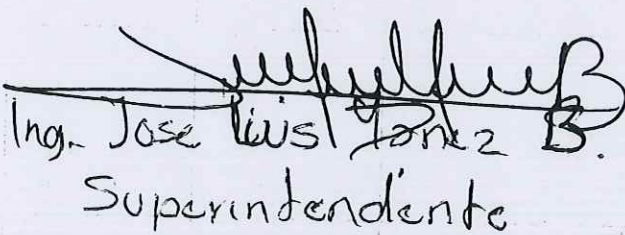 Ing. Jose Luis Yanez B.
Superintendente